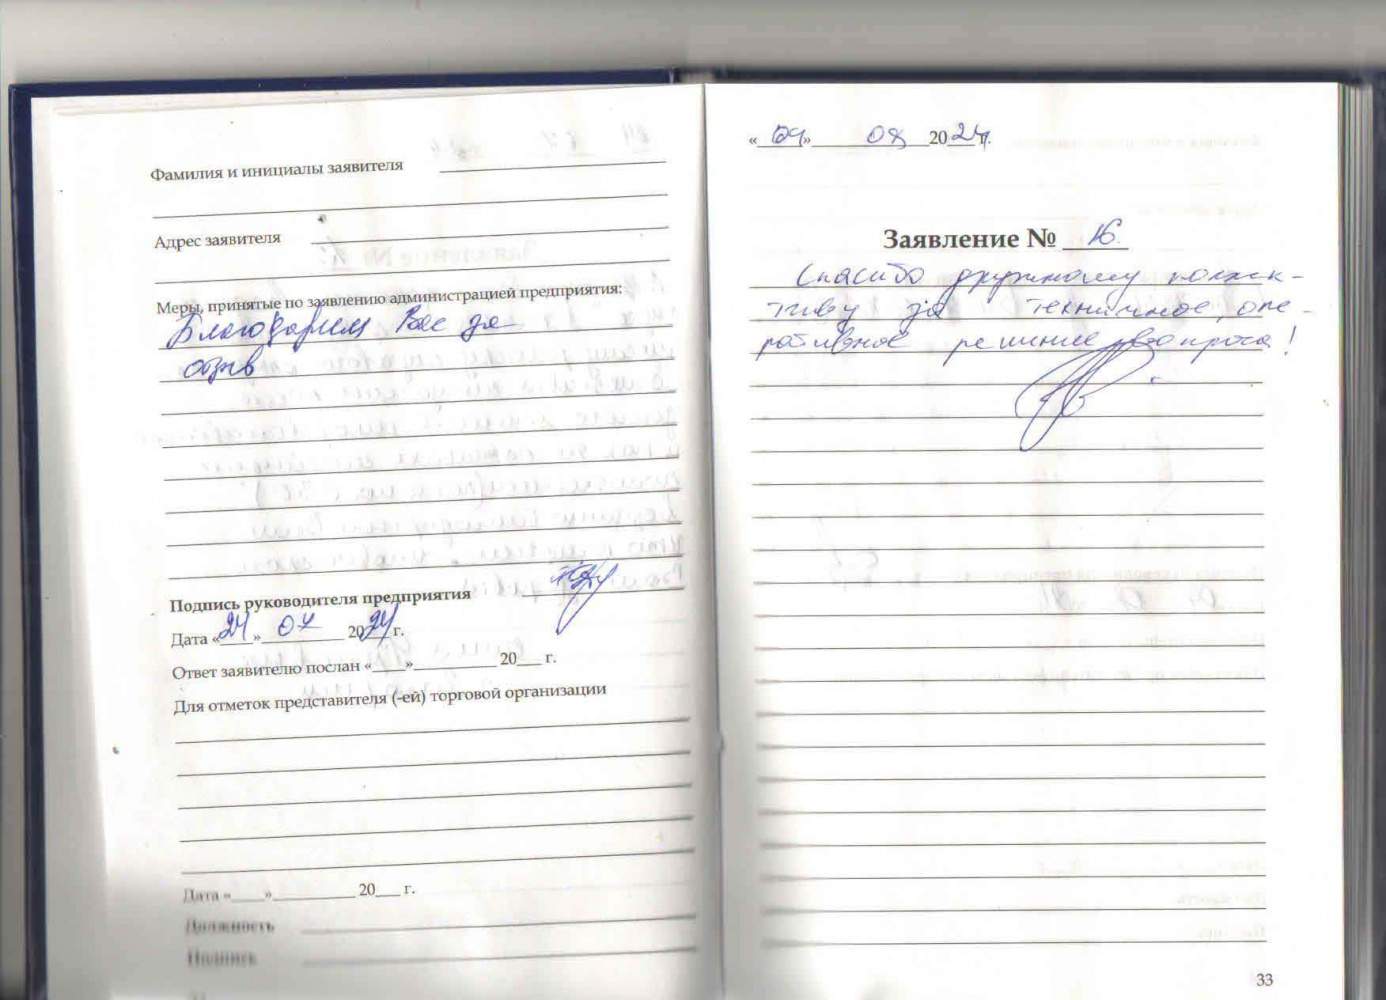 Фамилия и инициалы заявителя
Адрес заявителя
Меры, принятые по заявлению администрацией предприятия:
Благодарим Вас за
отзыв
Подпись руководителя предприятия
Дата «24» 07 2024 г.
Ответ заявителю послан «___»_________ 20___ г.
Для отметок представителя (-ей) торговой организации
Дата «___»_________ 20___ г.
Должность
Подпись
«04» 08 2024 г.
Заявление № 16.
Спасибо дружному коллек-
тиву за техничное, опе-
ративное решение вопроса!
33